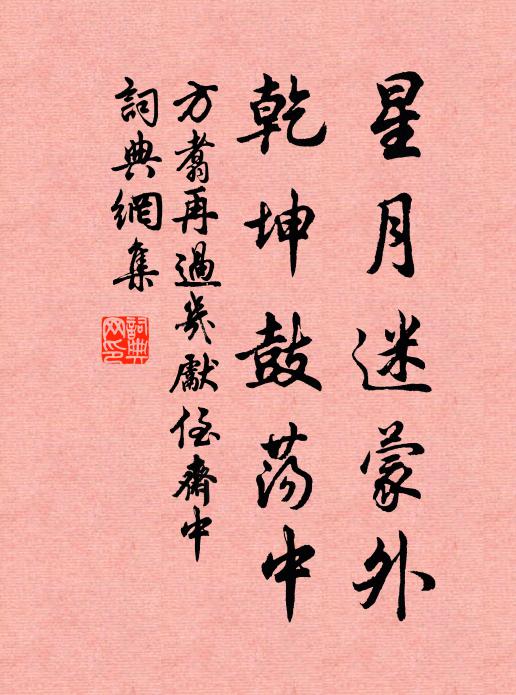 星月迷蒙外
乾坤鼓蕩中
方翥再過幾獻侄齋中
詞典網集
詞典
网印